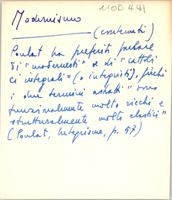 1100 441
Modernismo
(contenuti)
Poulat ha preferito parlare
di "modernisti" e di "cattoli
ci integrali" (o integristi), perché
i due termini astratti "sono
funzionalmente molto ricchi e
strutturalmente molto elastici"
(Poulat, Intégrisme, p. 57)